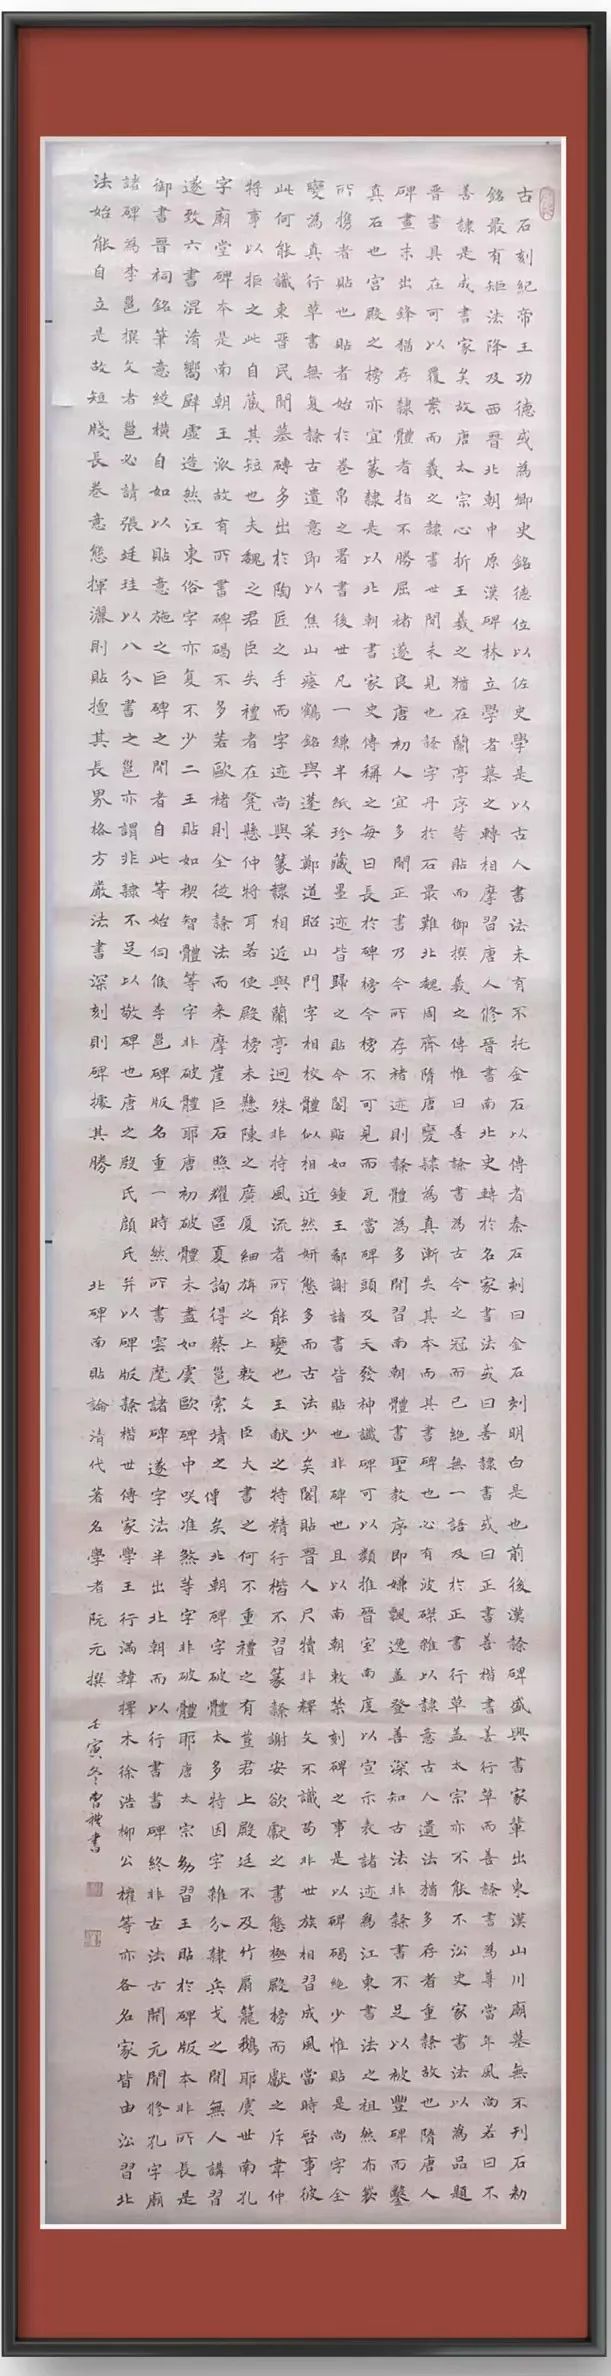 古石刻紀帝王功德或為卿史銘德位以佐史學是以古人書法未有不托金石以傳者秦石刻曰金石刻明白是也前後漢隸碑盛興書家輩出東漢山川廟墓無不刊石勒
銘最有矩法降及西晉北朝中原漢碑林立學者慕之轉相摩習唐人修晉書南北史轉於名家書法或曰善隸書或曰正書善楷書善行草而善隸書為尊當年風尚若曰不
善隸是成書家矣故唐太宗心折王羲之猶在蘭亭序等貼而御撰羲之傳惟曰善隸書為古今之冠而已絕無一語及於正書行草蓋太宗亦不能不沿史家書法以為品題
晉書具在可以覆案而羲之隸書世間未見也隸字丹於石最難北魏周齊隋唐變隸為真漸失其本而其書碑也必有波磔雜以隸意古人遺法猶多存者重隸故也隋唐人
碑畫末出鋒猶存隸體者指不勝屈褚遂良唐初人宜多開正書乃今所存褚迹則隸體為多開習南朝體書聖教序即嫌飄逸蓋登善深知古法非隸書不足以被豐碑而鑿
真石也宮殿之榜亦宜篆隸是以北朝書家史傳稱之每曰長於碑榜今榜不可見而瓦當碑頭及天發神讖碑可以類推晉室南度以宣示表諸迹為江東書法之祖然布袋
所攜者貼也貼者始於卷帛之署書後世凡一縑半紙珍藏墨迹皆歸之貼今閣貼如鍾王郗謝諸書皆貼也非碑也且以南朝敕禁刻碑之事是以碑碣絕少惟貼是尚字全
變為真行草書無复隸古遺意即以焦山瘞鶴銘與蓬萊鄭道昭山門字相校體似相近然妍態多而古法少矣閣貼晉人尺牘非釋文不識苟非世族相習成風當時啓事彼
此何能識東晉民間墓磚多出於陶匠之手而字迹尚與篆隸相近與蘭亭迥殊非持風流者所能變也王献之特精行楷不習篆隸謝安欲獻之書態極殿榜而獻之斥韋仲
將事以拒之此自藏其短也夫魏之君臣失禮者在凳懸仲將耳若使殿榜未懸陳之廣厦細旃之上敕文臣大書之何不重禮之有豈君上殿廷不及竹扇籠鵝耶虞世南孔
字廟堂碑本是南朝王派故有所書碑碣不多若歐褚則全從隸法而来摩崖巨石照耀區夏詢得蔡邕索靖之傳矣北朝碑字破體太多特因字雜分隸兵戈之間無人講習
遂致六書混淆嚮壁虛造然江東俗字亦复不少二王貼如稧智體等字非破體耶唐初破體未盡如虞歐碑中咲准煞等字非破體耶唐太宗㓜習王貼於碑版本非所長是
御書晉祠銘筆意縱橫自如以貼意施之巨碑之開者自此等始伺候李邕碑版名重一時然所書雲麾諸碑遂字法半出北朝而以行書書碑終非古法古開元間修孔字廟
諸碑為李邕撰文者邕必請張廷珪以八分書之邕亦謂非隸不足以敬碑也唐之殿氏顔氏并以碑版隸楷世傳家學王行滿韓擇木徐浩柳公權等亦各名家皆由沿習北
法始能自立是故短牋長卷意態揮灑則貼擅其長界格方嚴法書深刻則碑據其勝 北碑南貼論清代著名學者阮元撰 壬寅冬曹書